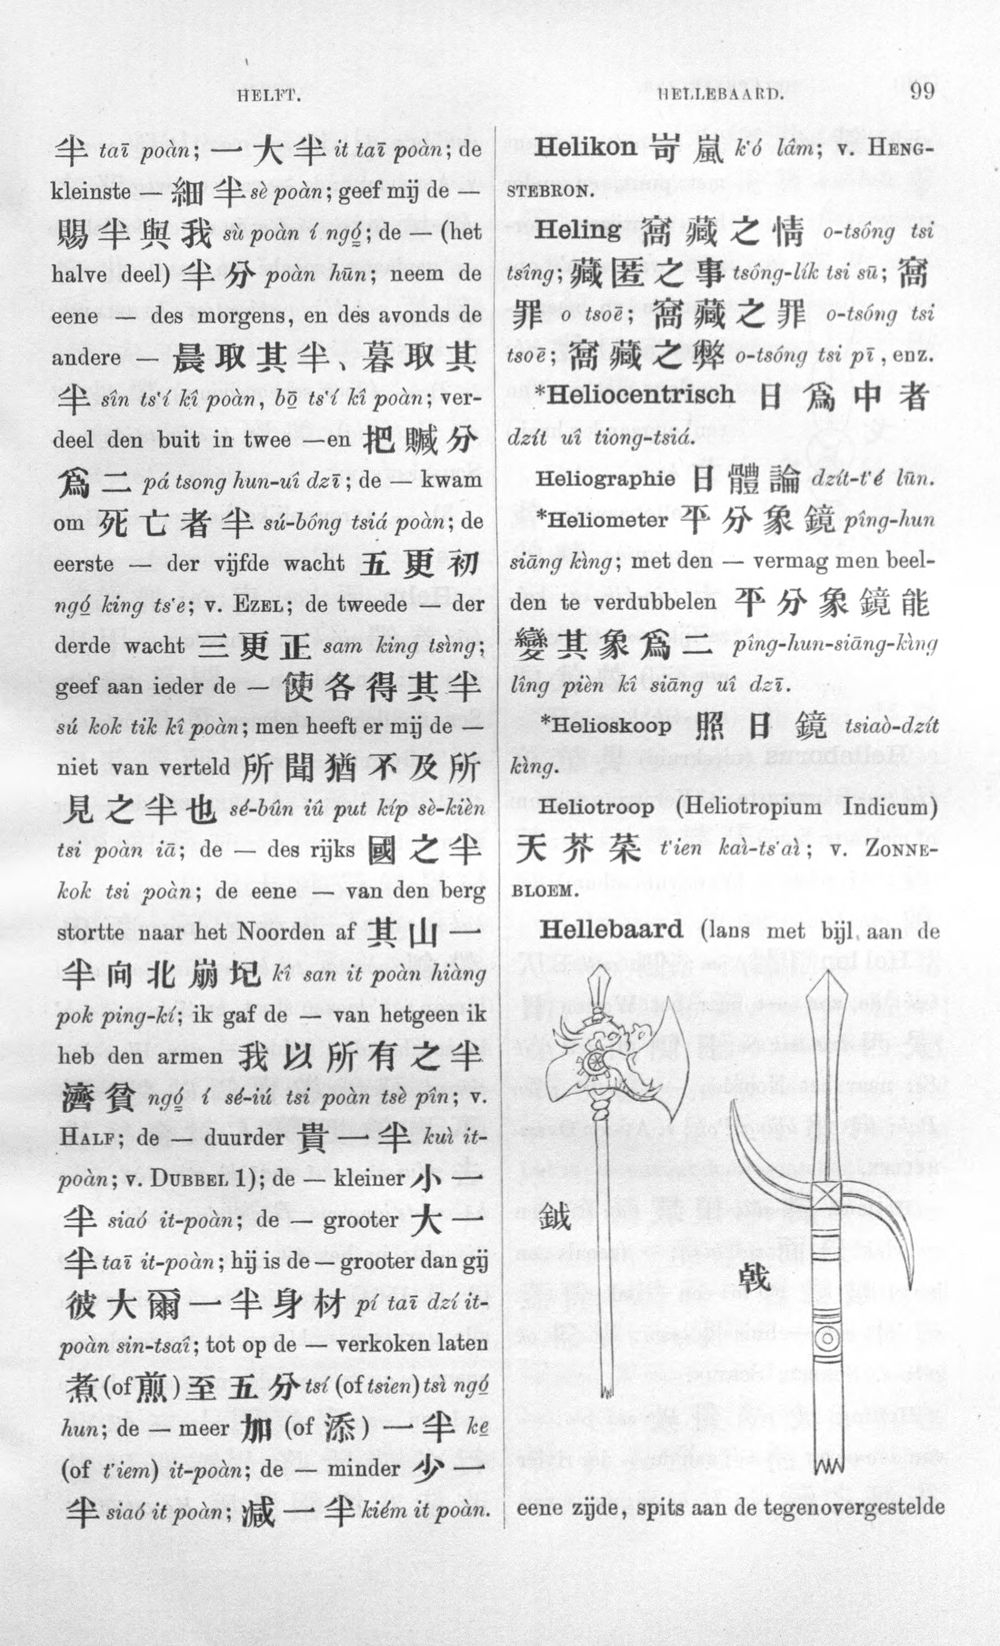 HELFT.
HELLEBAARD. 99
半 taī poàn; 一大半 it taī poàn; de
kleinste — 細半 sè poàn; geef mij de —
賜半與我 sù poàn í ngó; de — (het
halve deel) 半分 poàn hūn; neem de
eene — des morgens, en des avonds de
andere — 晨取其半、暮取其
半 sîn ts‘í kî poàn, bō ts‘í kî poàn; ver-
deel den buit in twee —en 把贓分
爲二 pá tsong hun-uî dzī; de — kwam
om 死亡者半 sú-bông tsiá poàn; de
eerste — der vijfde wacht 五更初
ngó king ts‘e; v. EZEL; de tweede — der
derde wacht 三更正 sam king tsìng;
geef aan ieder de — 使各得其半
sú kok tik kî poàn; men heeft er mij de —
niet van verteld 所聞猶不及所
見之半也 sé-bûn iû put kíp sè-kièn
tsi poàn iā; de — des rijks 國之半
kok tsi poàn; de eene — van den berg
stortte naar het Noorden af 其山一
半向北崩圮 kî san it poàn hiàng
pok ping-kí; ik gaf de — van hetgeen ik
heb den armen 我以所有之半
濟貧 ngó í sé-iú tsi poàn tsè pîn; v.
HALF; de — duurder 貴一半 kuì it-
poàn; v. DUBBEL 1); de — kleiner 小一
半 siaó it-poàn; de — grooter 大一
半 taī it-poàn; hij is de — grooter dan gij
彼大爾一半身材 pí taī dzí it-
poàn sin-tsaî; tot op de — verkoken laten
煮 (of 煎) 至五分 tsí (of tsien) tsì ngó
hun; de — meer 加 (of 添) 一半 ke
(of t‘iem) it-poàn; de — minder 少一
半 siaó it poàn; 減一半 kiém it poàn.
Helikon 岢嵐 k‘ó lâm; v. HENG-
STEBRON.
Heling 窩藏之情 o-tsông tsi
tsîng; 藏匿之事 tsông-lík tsi sū; 窩
罪 o tsoē; 窩藏之罪 o-tsóng tsi
tsoē; 窩藏之弊 o-tsóng tsi pī, enz.
*Heliocentrisch 日爲中者
dzít uî tiong-tsiá.
Heliographie 日體論 dzít-t‘é lūn.
*Heliometer 平分象鏡 pîng-hun
siāng kìng; met den — vermag men beel-
den te verdubbelen 平分象鏡能
變其象爲二 pîng-hun-siāng-kìng
lîng pièn kî siāng uî dzī.
*Helioskoop 照日鏡 tsiaò-dzít
kìng.
Heliotroop (Heliotropium Indicum)
天芥菜 t‘ien kaì-ts‘aì; v. ZONNE-
BLOEM.
Hellebaard (lans met bijl aan de
鉞
戟
eene zijde, spits aan de tegenovergestelde